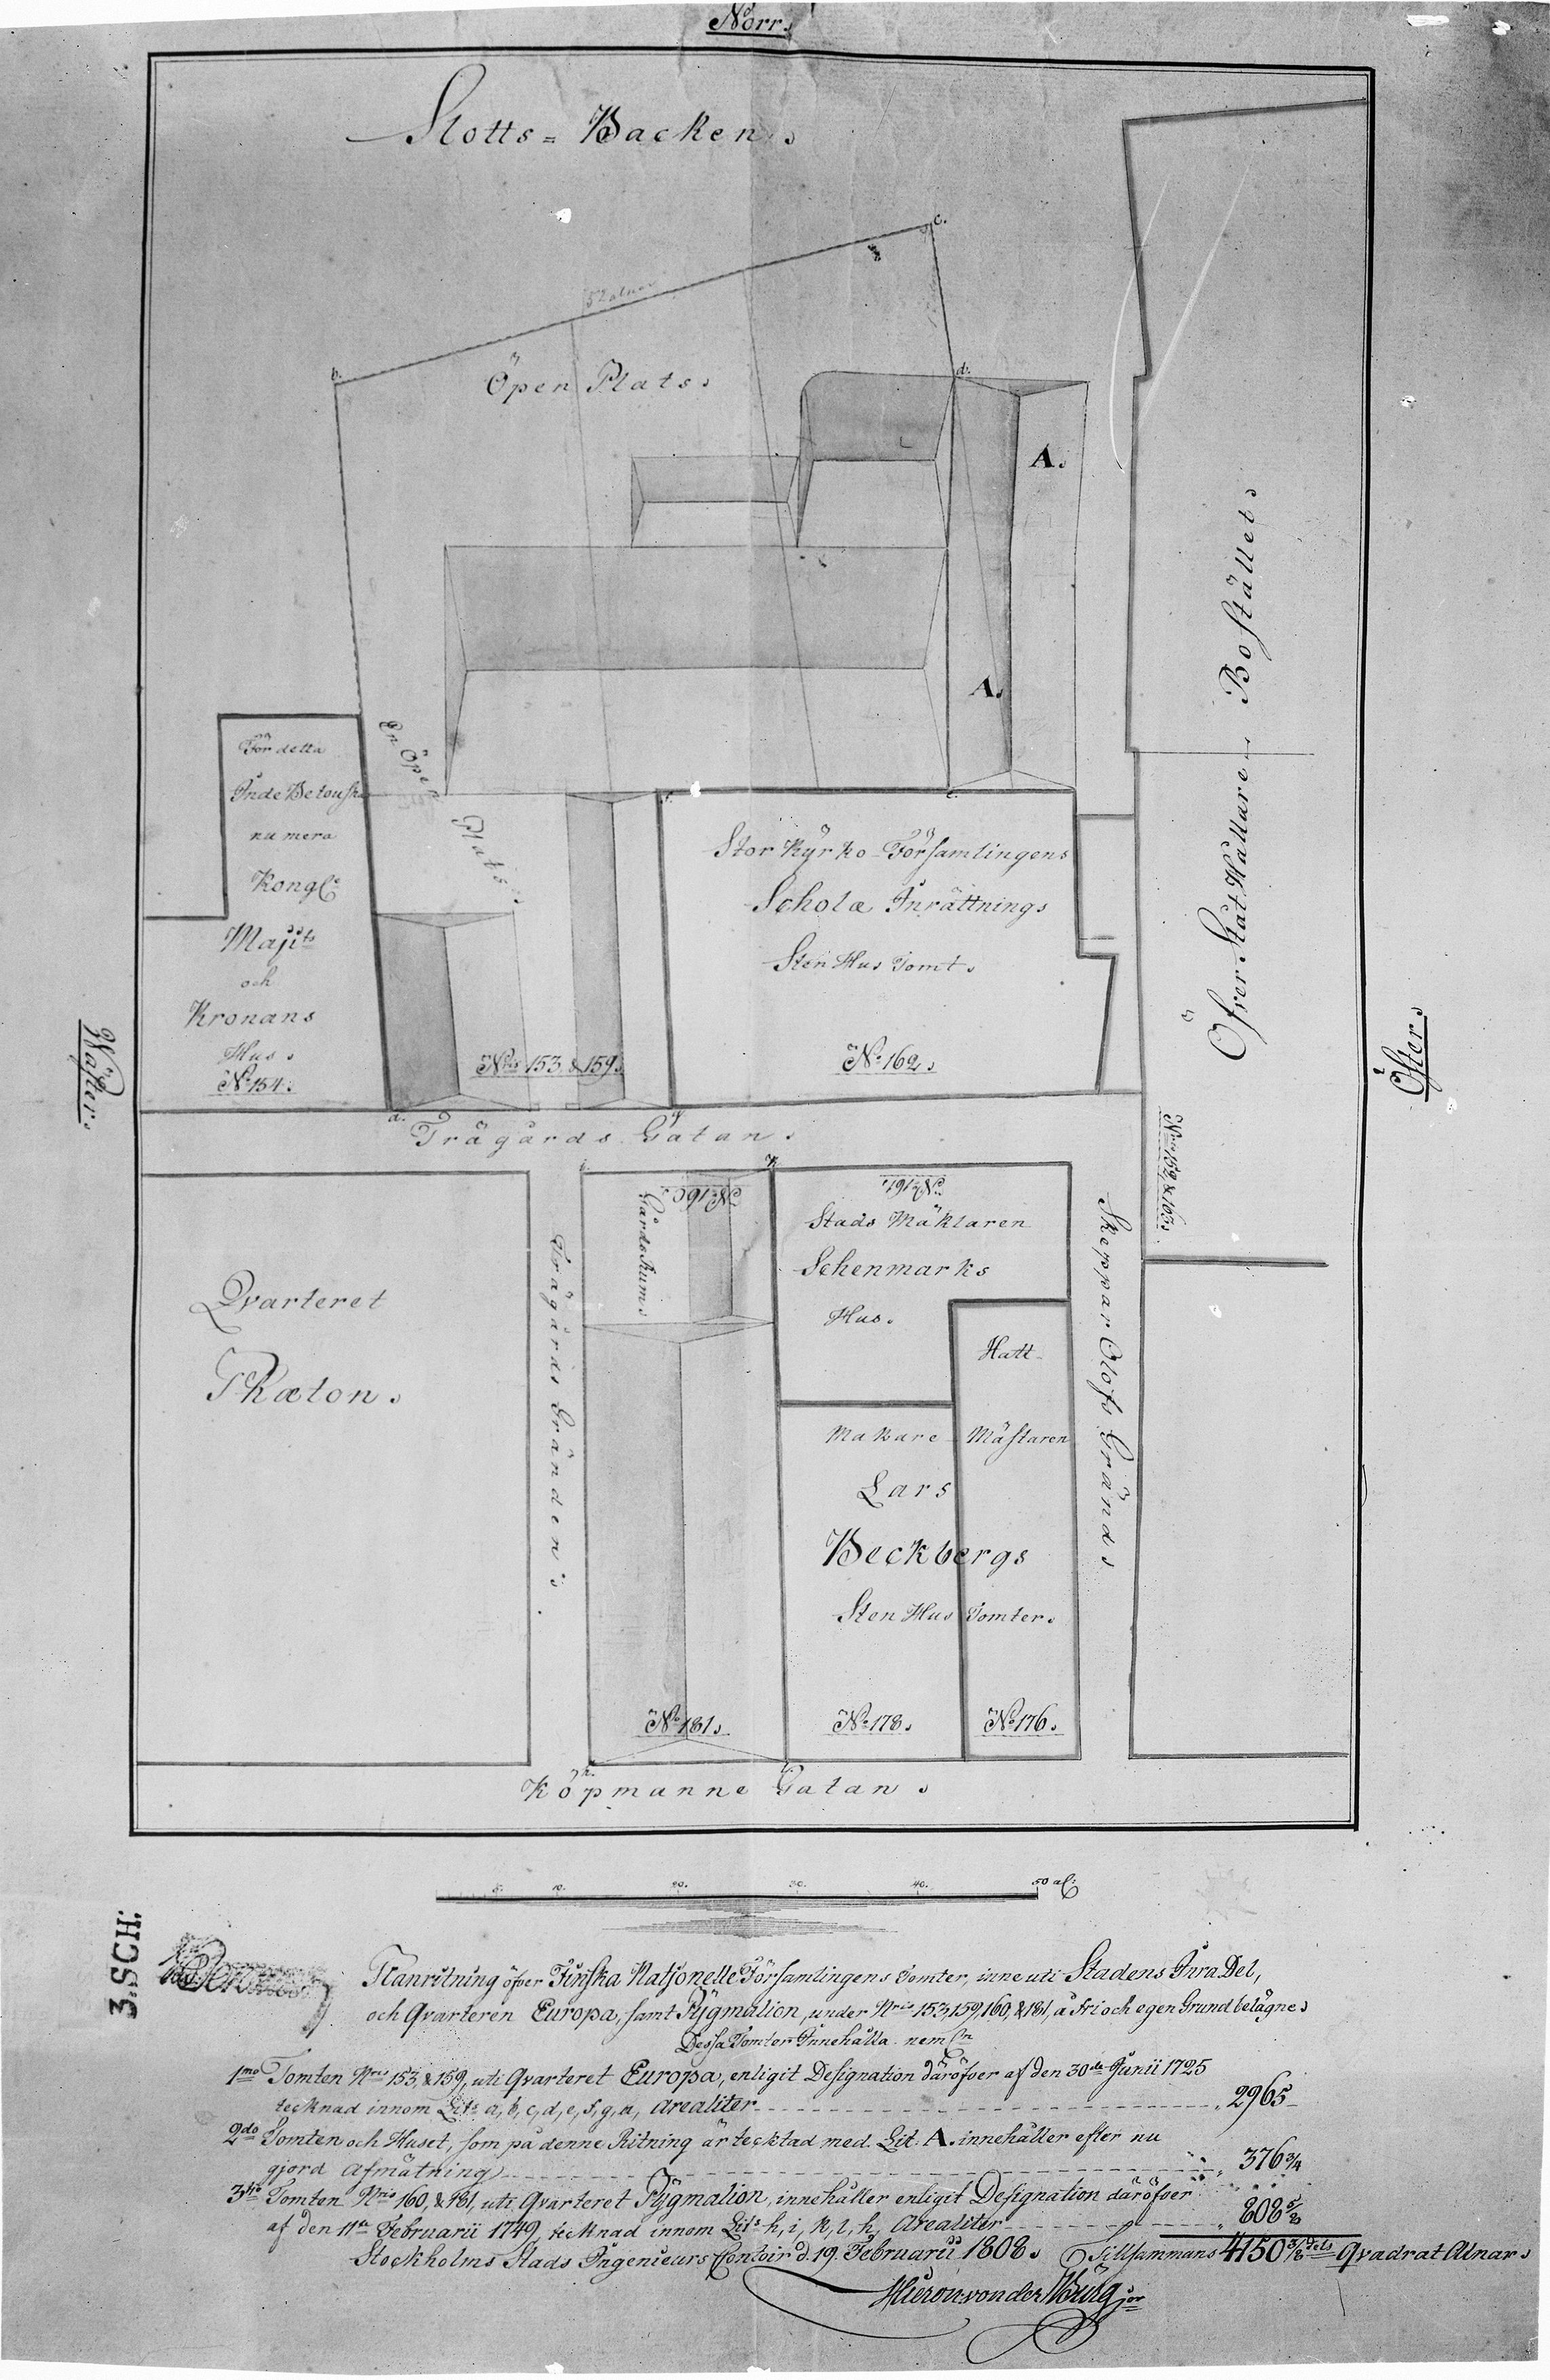 Norr.
Slotts-Backen.
b.
52 alnar
c.
Öpen Plats.
d.
A.
A.
Öfver Ståt Hållare Boställets
För detta
Inde Betouska
numera
Kongl:
Majts
och
Kronans
Hus.
No 154.
En Öpen
Plats.
Nris 153, & 159.
f.
e.
Stor Kyrko-Församlingens
Scholæ Inrättnings
Sten Hus Tomt.
No 162.
Wäster.
Öster.
a.
g.
Trägårds Gatan.
Nris 152, & 163.
Qvarteret
Phæton.
Trägårds Gränden.
i.
k.
No 160.
Gårds Rum.
No 181.
No 161.
Stads Mäklaren
Schenmarks
Hus.
Hatt-
Makare Mästaren
Lars
Beckbergs
Sten Hus Tomter.
No 178.
No 176.
Skeppar Olofs Gränd.
h.
l.
Köpmanne Gatan.
5. 10. 20. 30. 40. 50 al:
3.SCH:
Planritning öfver Finska Natsonelle Församlingens Tomter, inne uti Stadens Inra Del,
och Qvarteren Europa, samt Pygmalion, under Nris 153, 159, 160, & 181, å fri och egen Grund belägne.
Dessa Tomter Innehålla neml:n
1mo Tomten Nris 153, & 159, uti Qvarteret Europa, enligit Designation däröfver af den 30de Junii 1725
tecknad innom Lit: a, b, c, d, e, f, g, a, Arealiter 2965
2do Tomten och Huset, som på denne Ritning är tecktad med Lit. A. innehåller efter nu
gjord Afmätning 376 3/4
3tio Tomten Nris 160, & 181, uti Qvarteret Pygmalion, innehåller enligit Designation däröfver
af den 11te Februarii 1749, tecknad innom Lit: h, i, k, l, h, Arealiter 808 5/8
Stockholms Stads Ingenieurs Contoir d. 19. Februarii 1808. Tillsammans 4150 3/8 dels Qvadrat Alnar.
Hieron: von der Burg jor